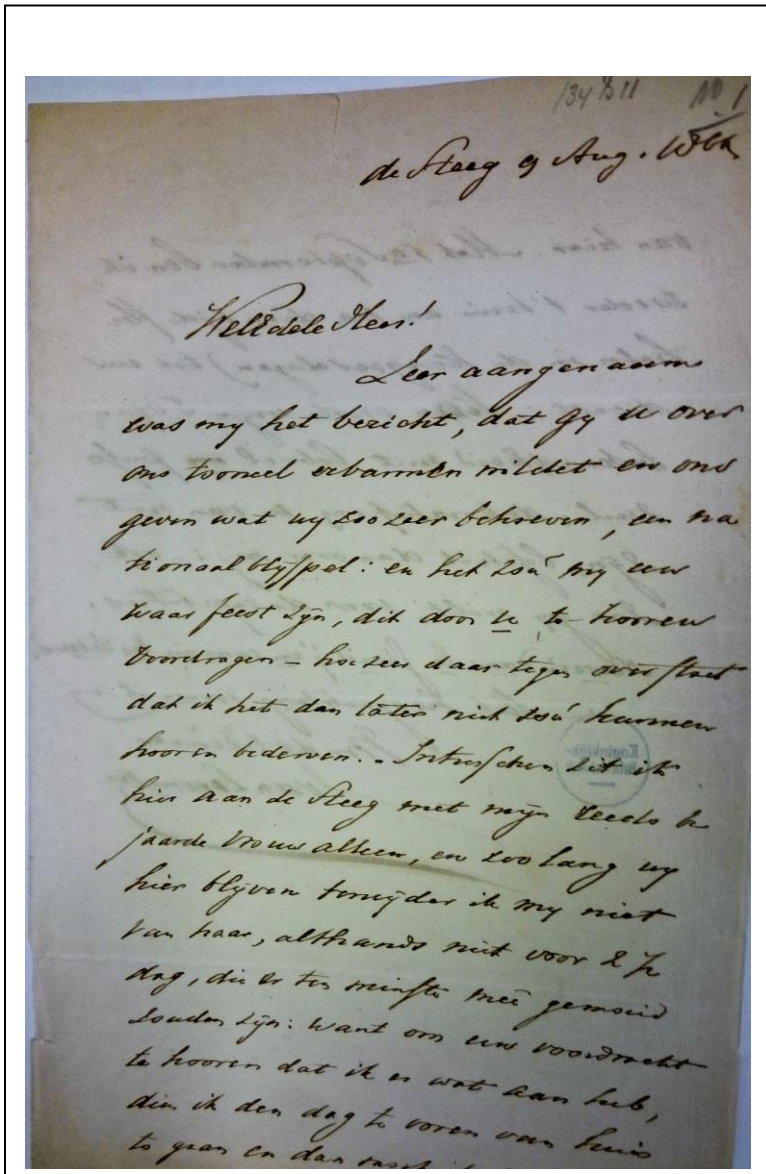 134 B 11 No 1
de Steeg 9 Aug.
WelEdele Heer!
Zeer aangenaam
was my het bericht, dat gy u over
ons tooneel erbarmen wildet en ons
geven wat wy zoo zeer behoeven, een na
tionaal blyspel: en het zou my een
waar feest zyn, dit door u te hooren
voordragen – hoezeer daar tegen overstaat
dat ik het dan later niet zou kunnen
hooren bederven. – Intusschen zit ik
hier aan de Steeg met myn reeds be
jaarde vrouw alleen, en zoo lang wy
hier blyven verwyder ik my niet
van haar, althands niet voor 2
dag, die er ten minste meê gemoeid
zouden zyn: want om uw voordracht
te hooren dat ik er wat aan heb,
dien ik den dag te voren van huis
te gaan en dan